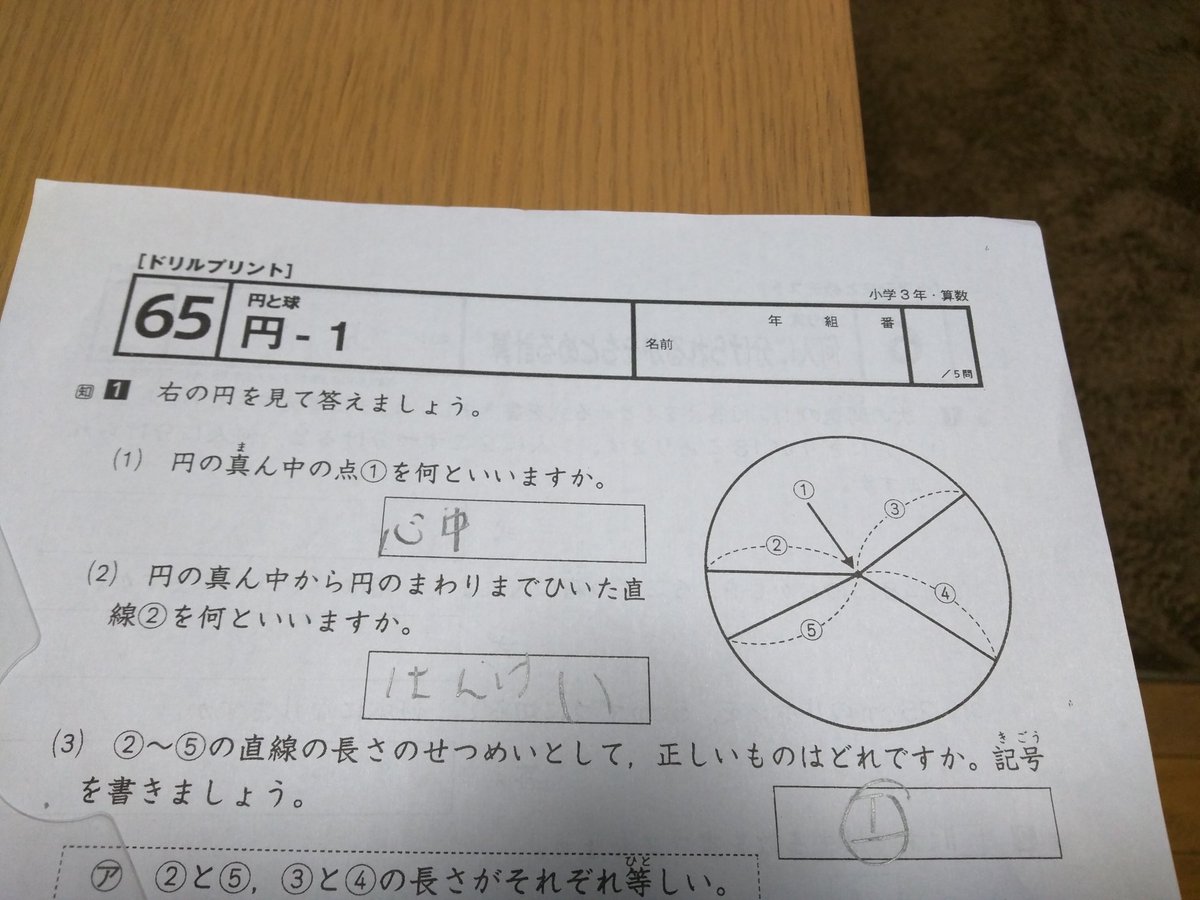 [ドリルプリント]
小学3年・算数
65
円と球
円-1
年 組 番
名前
/5問
知 1 右の円を見て答えましょう。
(1) 円の真ん中の点①を何といいますか。
ま
心中
(2) 円の真ん中から円のまわりまでひいた直
線②を何といいますか。
はんけい
①
②
③
④
⑤
(3) ②～⑤の直線の長さのせつめいとして，正しいものはどれですか。記号
きごう
を書きましょう。
エ
㋐ ②と⑤，③と④の長さがそれぞれ等しい。
ひと